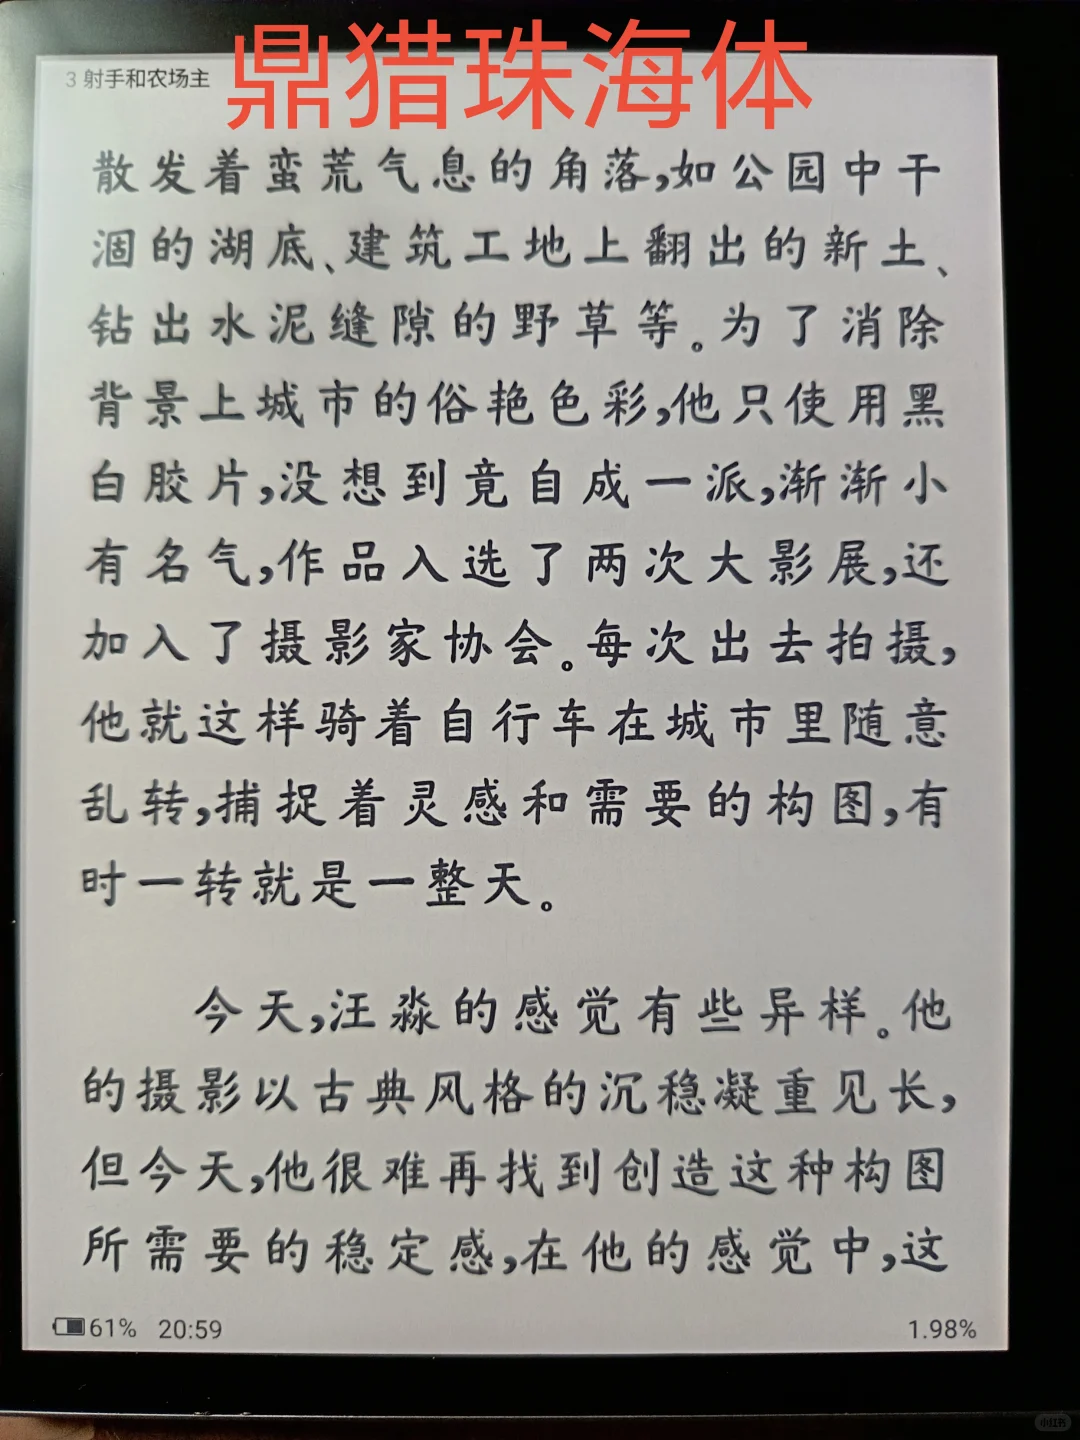 鼎猎珠海体
3 射手和农场主
散发着蛮荒气息的角落,如公园中干
涸的湖底、建筑工地上翻出的新土、
钻出水泥缝隙的野草等。为了消除
背景上城市的俗艳色彩,他只使用黑
白胶片,没想到竟自成一派,渐渐小
有名气,作品入选了两次大影展,还
加入了摄影家协会。每次出去拍摄,
他就这样骑着自行车在城市里随意
乱转,捕捉着灵感和需要的构图,有
时一转就是一整天。
今天,汪淼的感觉有些异样。他
的摄影以古典风格的沉稳凝重见长,
但今天,他很难再找到创造这种构图
所需要的稳定感,在他的感觉中,这
61% 20:59 1.98%
小红书